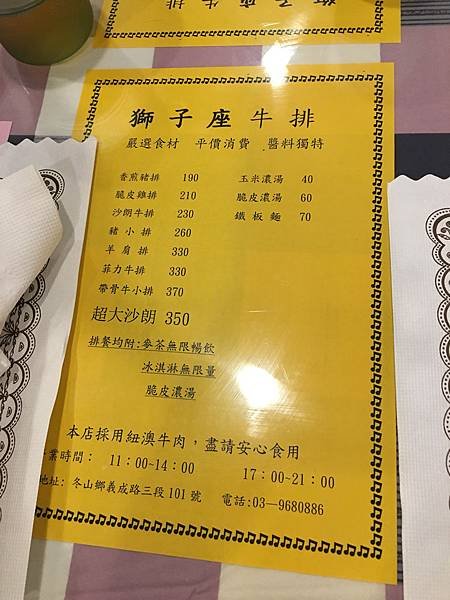 獅子座牛排
獅子座牛排
嚴選食材 平價消費 醬料獨特
香煎豬排 190 玉米濃湯 40
脆皮雞排 210 脆皮濃湯 60
沙朗牛排 230 鐵板麵 70
豬小排 260
羊肩排 330
菲力牛排 330
帶骨牛小排 370
超大沙朗 350
排餐均附:麥茶無限暢飲
冰淇淋無限量
脆皮濃湯
本店採用紐澳牛肉，盡請安心食用
業時間： 11:00~14:00 17:00~21:00
地址: 冬山鄉義成路三段101號 電話:03—9680886